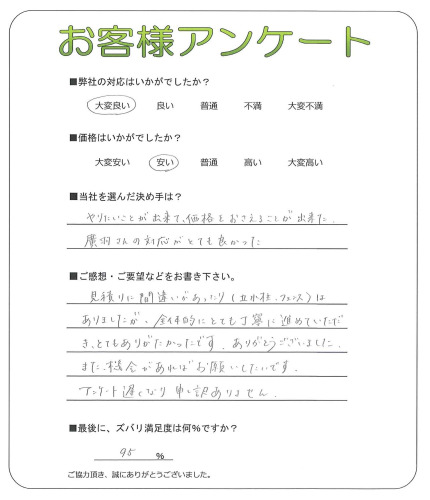 お客様アンケート
■弊社の対応はいかがでしたか？
大変良い 良い 普通 不満 大変不満
■価格はいかがでしたか？
大変安い 安い 普通 高い 大変高い
■当社を選んだ決め手は？
やりたいことが出来て、価格をおさえることが出来た.
廣羽さんの対応がとても良かった
■ご感想・ご要望などをお書き下さい。
見積りに間違いがあったり（立水栓、フェンス）は
ありましたが、全体的にとても丁寧に進めていただ
き、とてもありがたかったです. ありがとうございました.
また、機会があればお願いしたいです.
アンケート遅くなり申し訳ありません.
■最後に、ズバリ満足度は何％ですか？
95 ％
ご協力頂き、誠にありがとうございました。